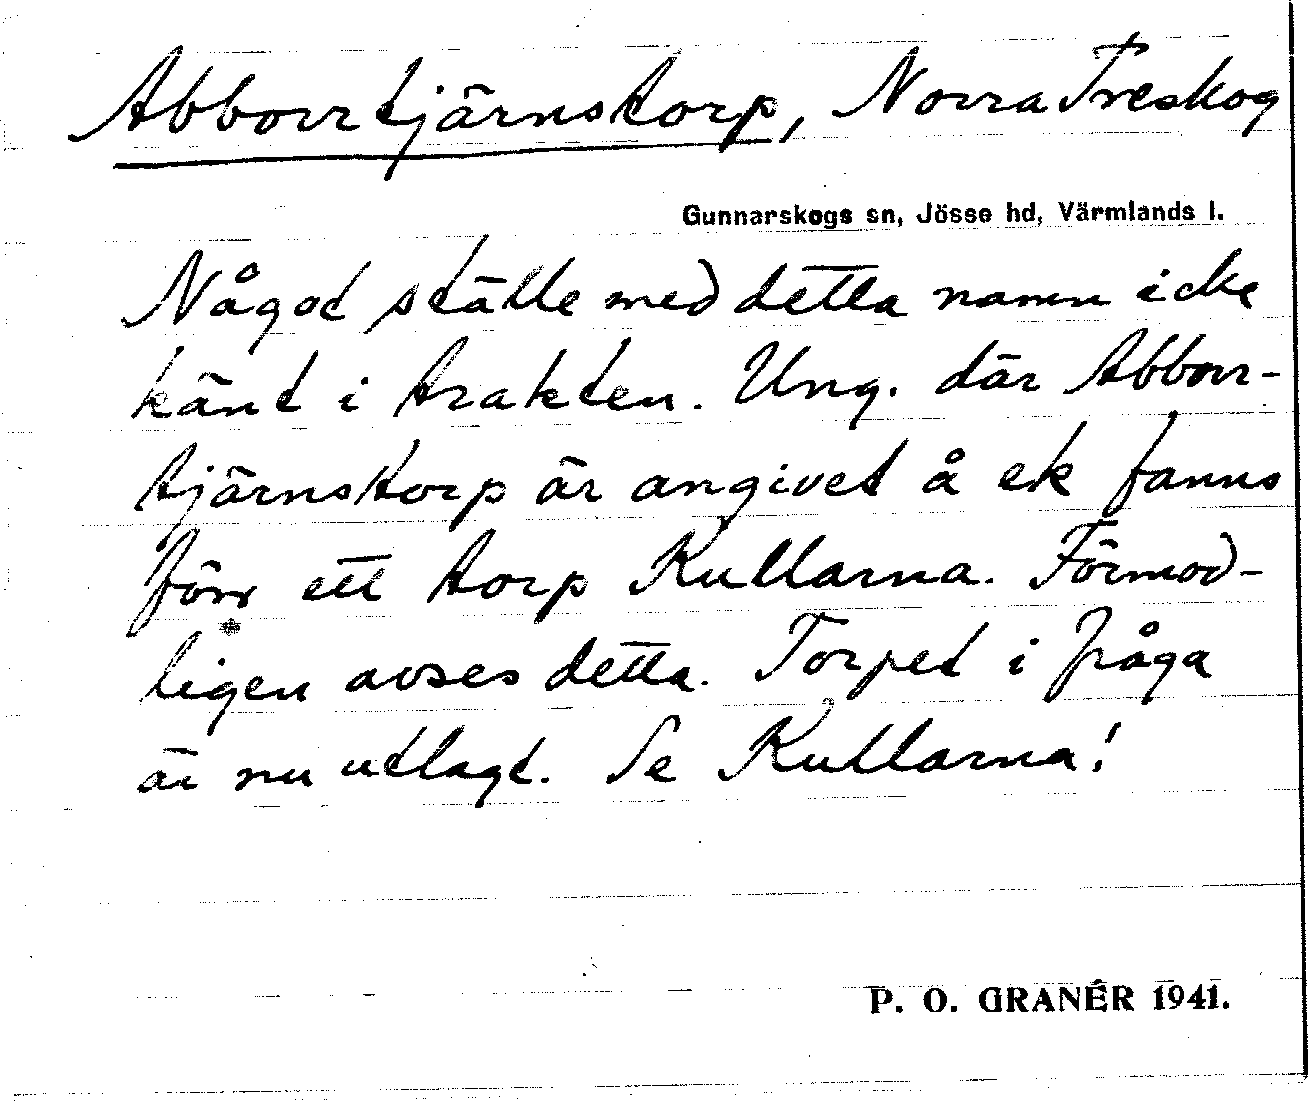 Abborrtjärnstorp, Norra Treskog
Gunnarskogs sn, Jösse hd, Värmlands l.
Något ställe med detta namn icke
känt i trakten. Ung. där Abborr-
tjärnstorp är angivet å ek fanns
förr ett torp Kullarna. Förmod-
ligen avses detta. Torpet i fråga
är nu utlagt. Se Kullarna!
P. O. GRANÉR 1941.